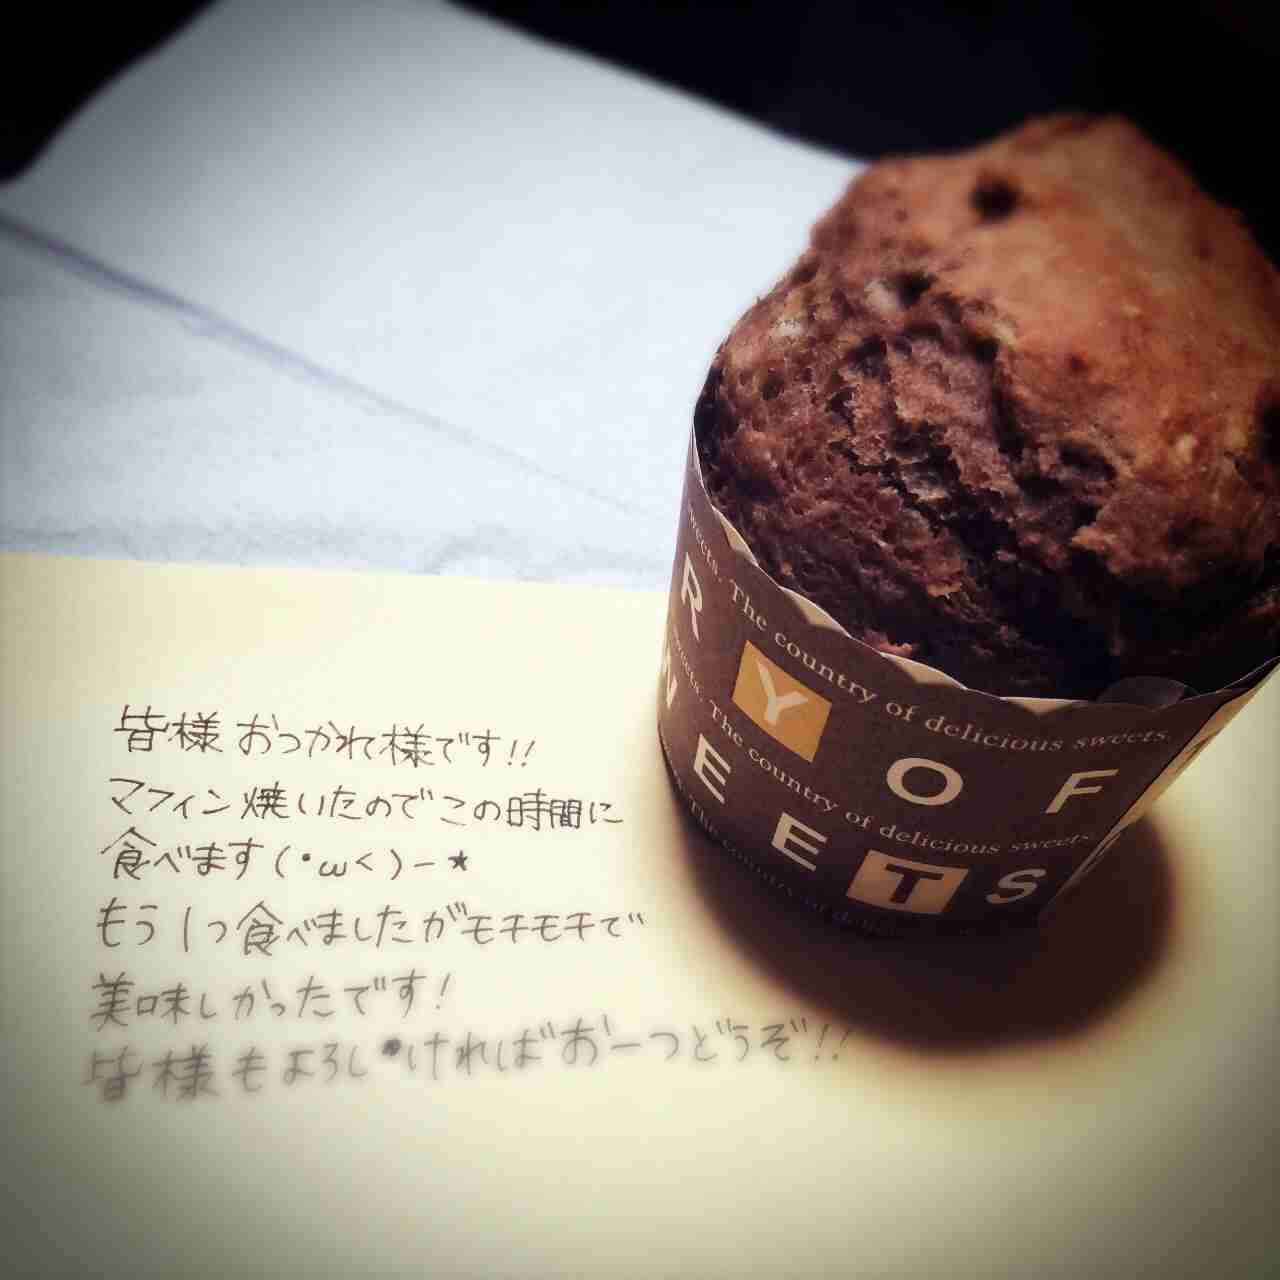 皆様おつかれ様です!!
マフィン焼いたのでこの時間に
食べます(・ω<)ー★
もう1つ食べましたがモチモチで
美味しかったです!
皆様もよろしければお一つどうぞ!!
sweets. The country of delicious sweets.
R Y OF
sweets. The country of delicious sweets.
W E E T S
The country of de